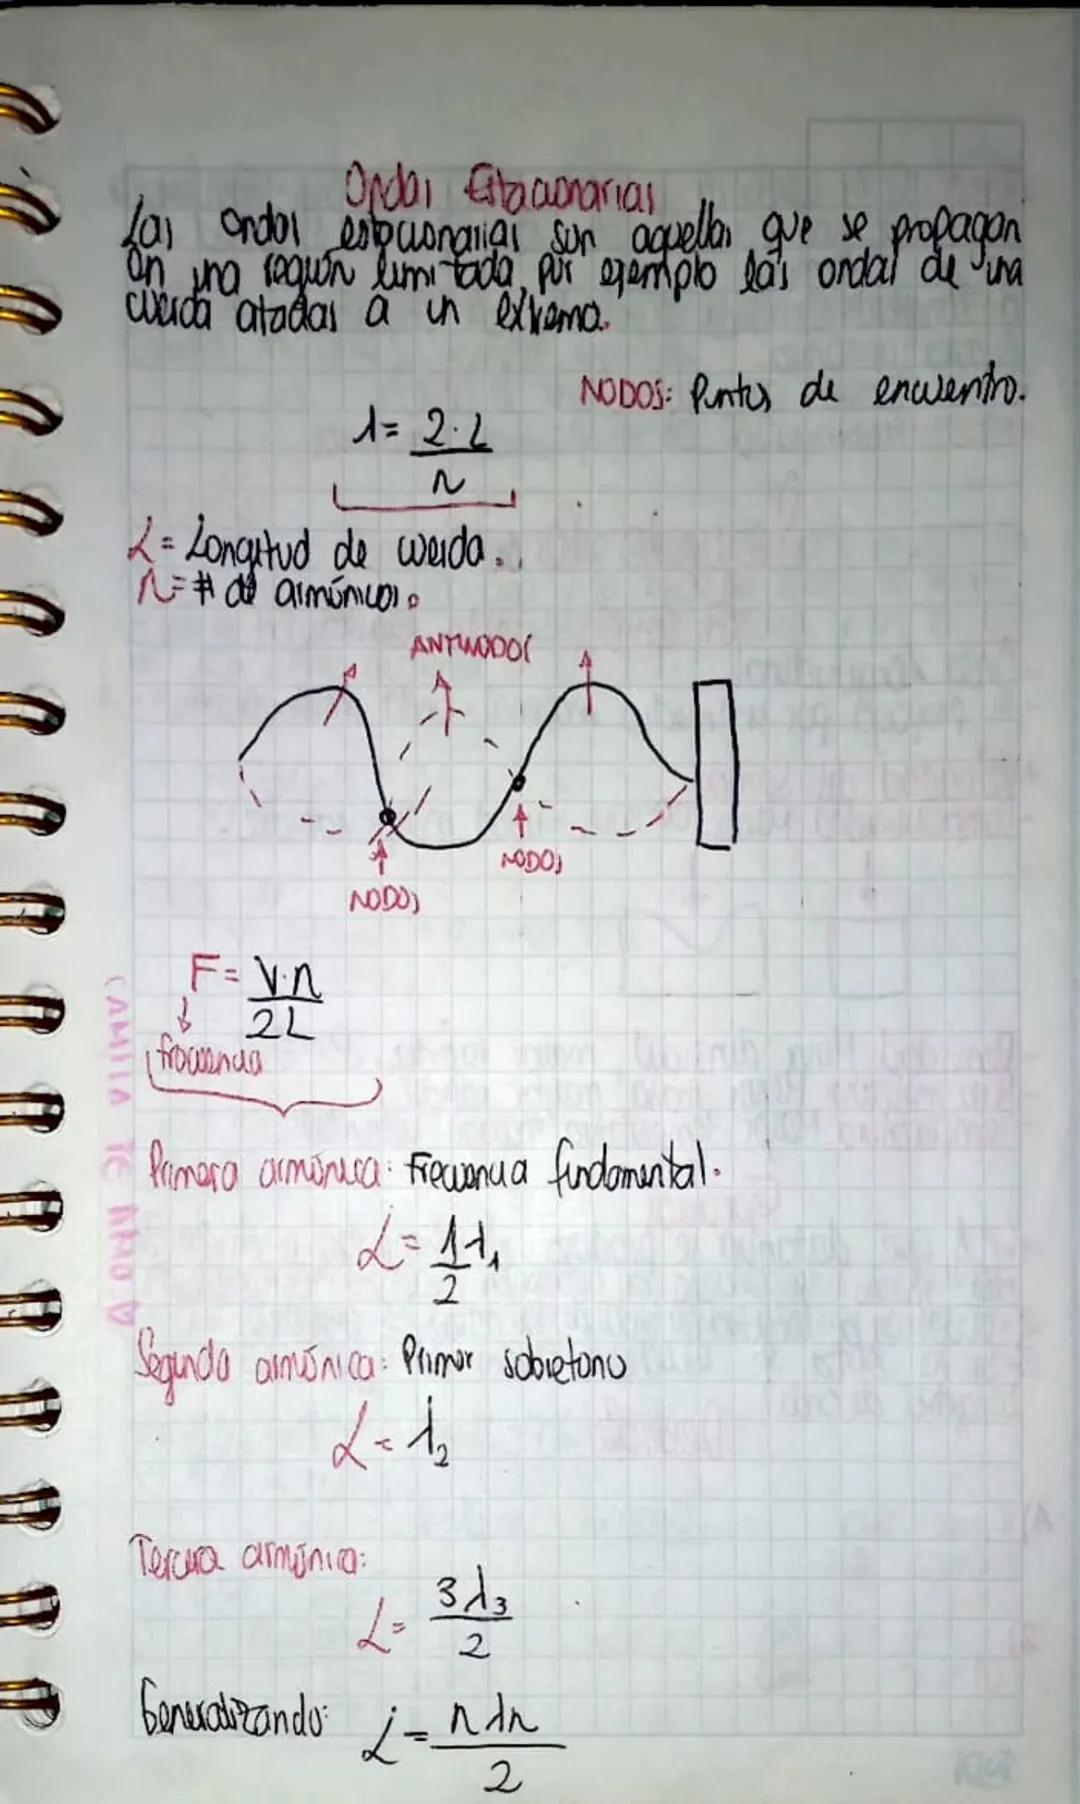 Ondas Estacionarias
Las ondas estacionarias son aquellas que se propagan
en una región limitada, por ejemplo las ondas de una
cuerda atadas a un extremo.
NODOS: Puntos de encuentro.
λ = 2·L
n
L = Longitud de cuerda.
n = # de armónicos.
ANTINODOS
NODOS
NODOS
F = V·n
2L
frecuencia
CAMILA TE AMO ♡
Primera armónica: Frecuencia fundamental.
L = 1λ₁
2
Segunda armónica: Primer sobretono
L = λ₂
Tercera armónica:
L = 3λ₃
2
Generalizando: L = nλn
2